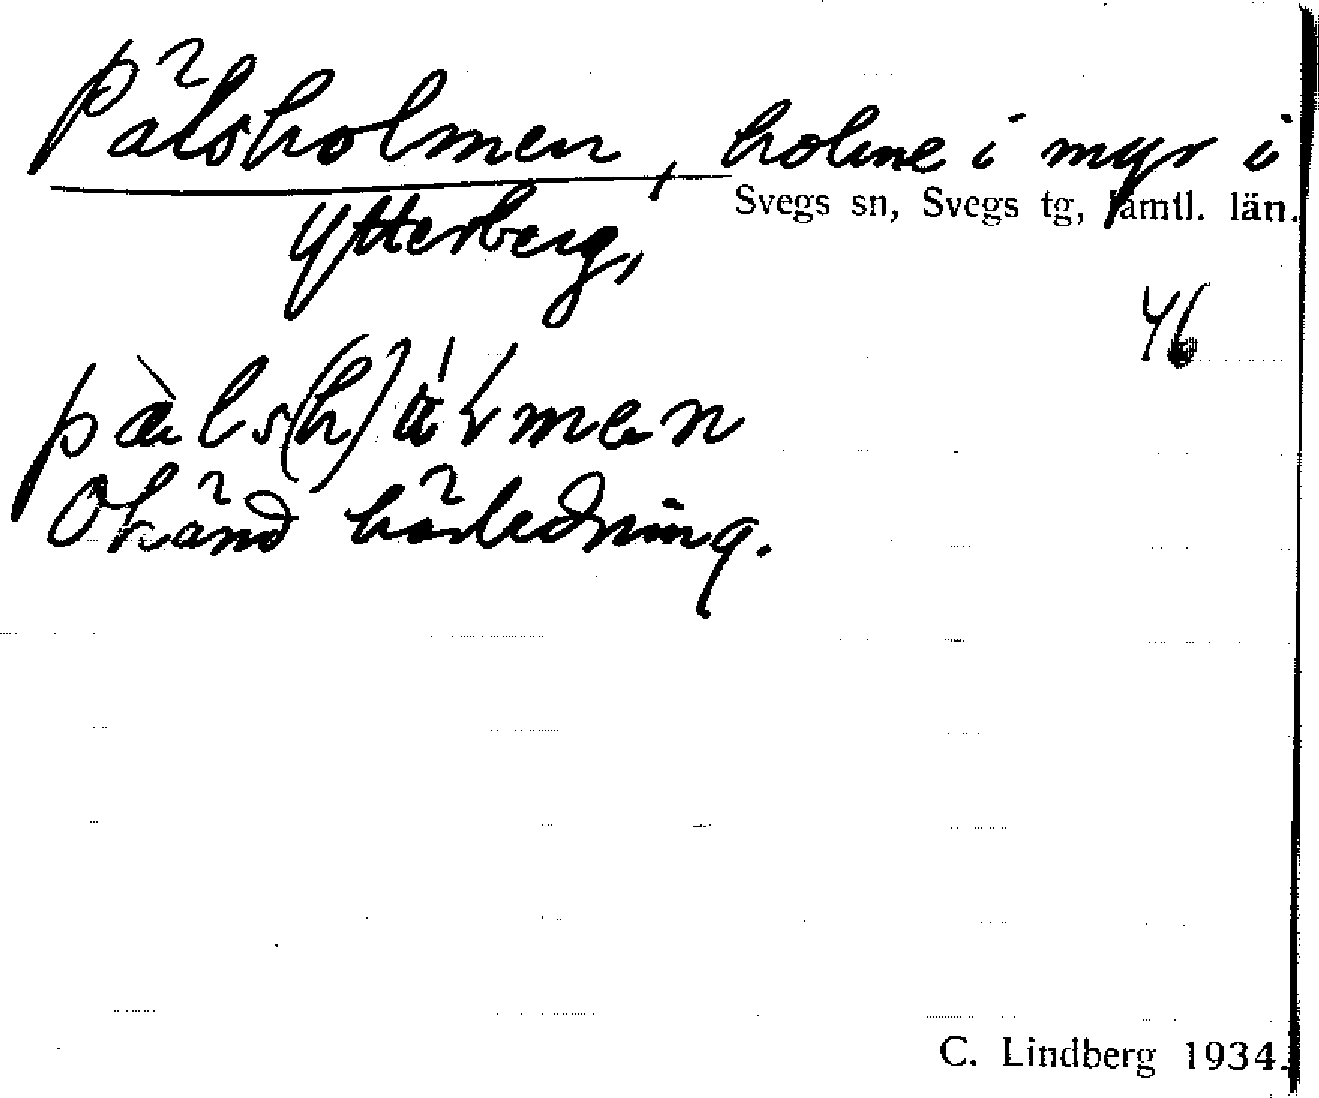 Pälsholmen, holme i myr i
Svegs sn, Svegs tg, Jämtl. län.
Ytterberg,
46
Okänd härledning.
C. Lindberg 1934.